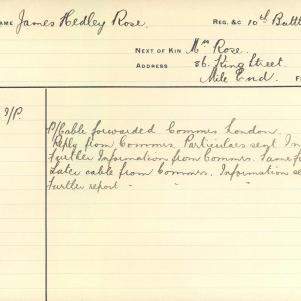 NAME James Hedley Rose. REG. &C 10th Batt
NEXT OF KIN Mrs Rose.
ADDRESS 86. King Street.
Mile End.
P/Cable forwarded Commrs London.
Reply from Commrs. Particulars sent In
Further Information from Commrs. Same
Later cable from Commrs. Information se
Further report - " "